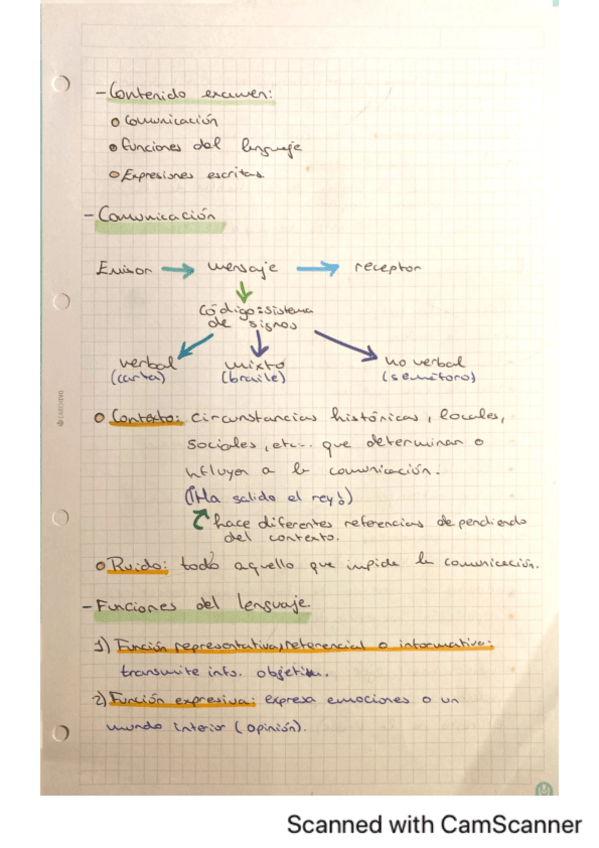 - Contenido examen:
o Comunicación
o Funciones del lenguaje
o Expresiones escritas.
- Comunicación
Emisor → mensaje → receptor
código: sistema
de signos
verbal mixto no verbal
(carta) (braile) (semáforo)
o Contexto: circunstancias históricas, locales,
sociales, etc... que determinan o
influyen a la comunicación.
(¡Ha salido el rey!)
hace diferentes referencias dependiendo
del contexto.
o Ruido: todo aquello que impide la comunicación.
- Funciones del lenguaje.
1) Función representativa, referencial o informativa:
transmite info. objetiva.
2) Función expresiva: expresa emociones o un
mundo interior (opinión).
Scanned with CamScanner